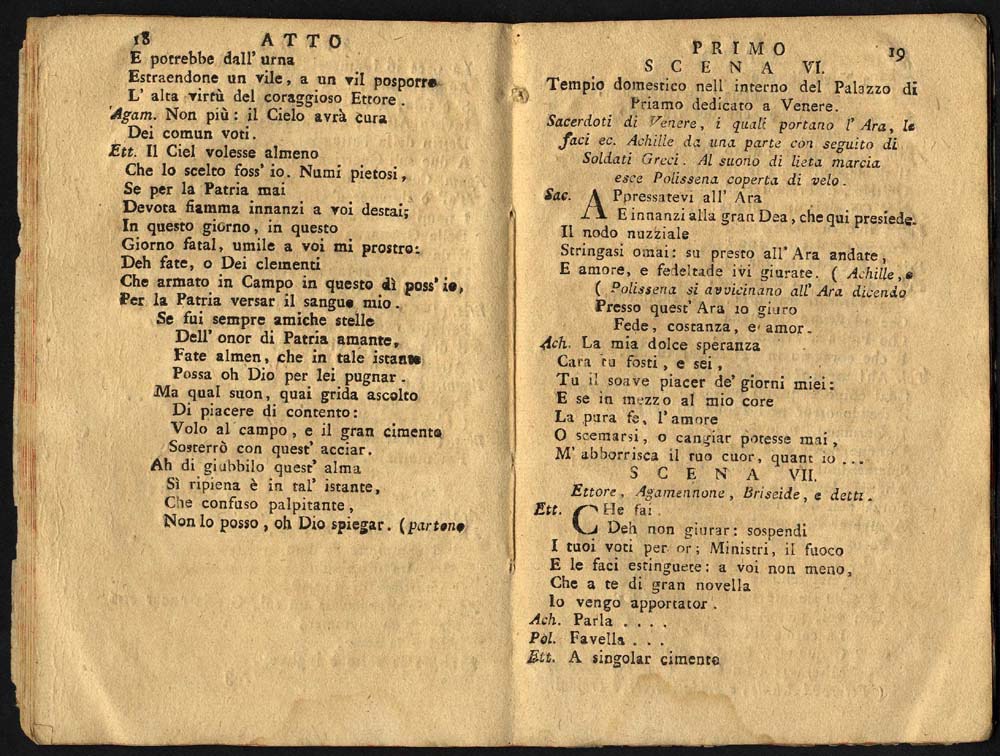 18 ATTO
E potrebbe dall' urna
Estraendone un vile, a un vil posporre
L' alta virtù del coraggioso Ettore.
Agam. Non più: il Cielo avrà cura
Dei comun voti.
Ett. Il Ciel volesse almeno
Che lo scelto foss' io. Numi pietosi,
Se per la Patria mai
Devota fiamma innanzi a voi destai;
In questo giorno, in questo
Giorno fatal, umile a voi mi prostro:
Deh fate, o Dei clementi
Che armato in Campo in questo dì poss' io,
Per la Patria versar il sangue mio.
Se fui sempre amiche stelle
Dell' onor di Patria amante,
Fate almen, che in tale istante
Possa oh Dio per lei pugnar.
Ma qual suon, quai grida ascolto
Di piacere di contento:
Volo al campo, e il gran cimento
Sosterrò con quest' acciar.
Ah di giubbilo quest' alma
Sì ripiena è in tal' istante,
Che confuso palpitante,
Non lo posso, oh Dio spiegar. (partono
PRIMO 19
SCENA VI.
Tempio domestico nell interno del Palazzo di
Priamo dedicato a Venere.
Sacerdoti di Venere, i quali portano l' Ara, le
faci ec. Achille da una parte con seguito di
Soldati Greci. Al suono di lieta marcia
esce Polissena coperta di velo.
Sac. APpressatevi all' Ara
E innanzi alla gran Dea, che qui presiede.
Il nodo nuzziale
Stringasi omai: su presto all' Ara andate,
E amore, e fedeltade ivi giurate. (Achille, e
(Polissena si avvicinano all' Ara dicendo
Presso quest' Ara io giuro
Fede, costanza, e amor.
Ach. La mia dolce speranza
Cara tu fosti, e sei,
Tu il soave piacer de' giorni miei:
E se in mezzo al mio core
La pura fe, l' amore
O scemarsi, o cangiar potesse mai,
M' abborrisca il tuo cuor, quant io ...
SCENA VII.
Ettore, Agamennone, Briseide, e detti.
Ett. CHe fai.
Deh non giurar: sospendi
I tuoi voti per or; Ministri, il fuoco
E le faci estinguete: a voi non meno,
Che a te di gran novella
Io vengo apportator.
Ach. Parla ....
Pol. Favella ...
Ett. A singolar cimento